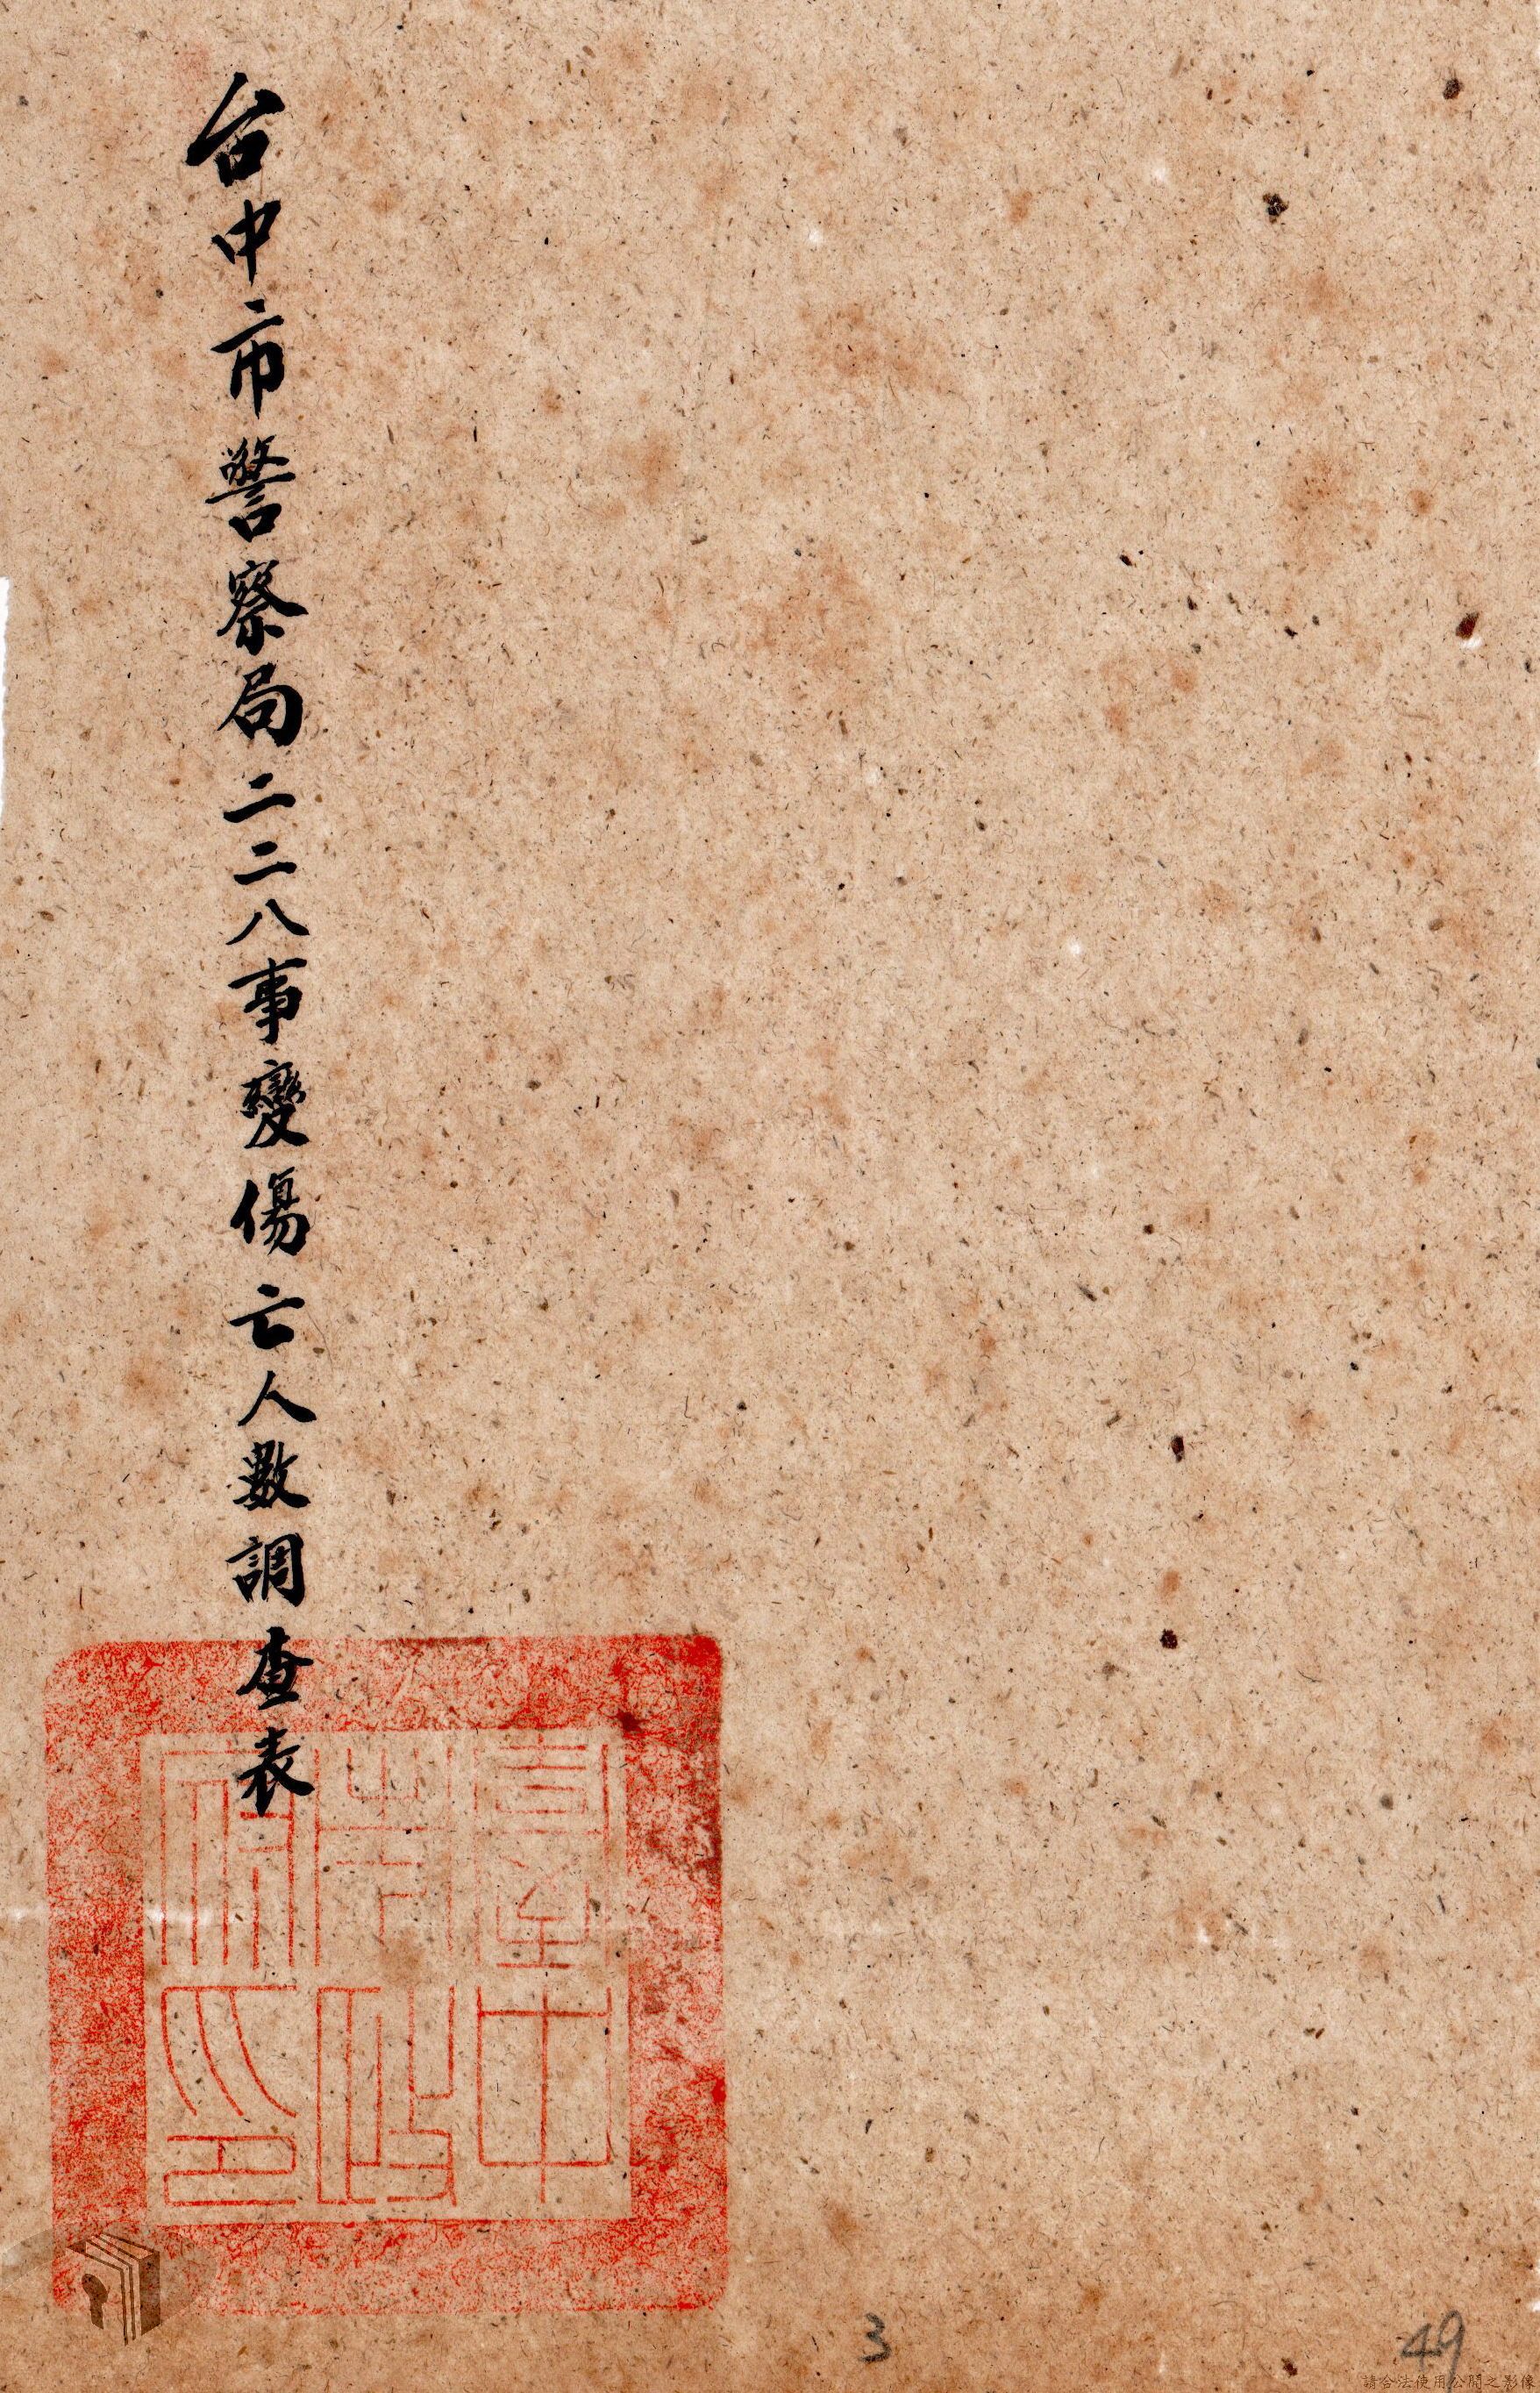 台中市警察局二二八事變傷亡人數調查表
臺中
市政
府印
3
49
請合法使用公開之影像